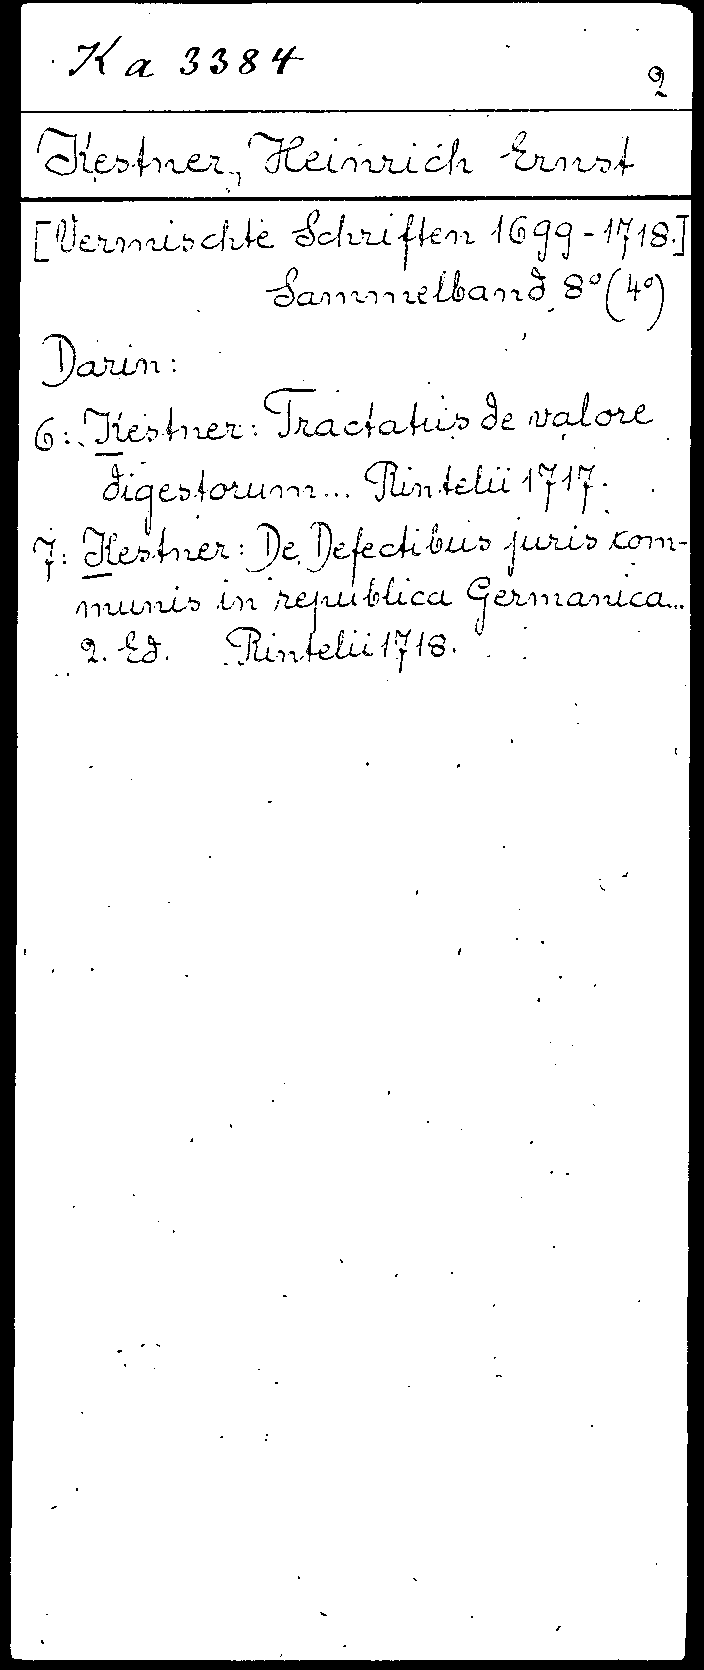 Ka 3384
2
Kestner, Heinrich Ernst
[Vermischte Schriften 1699-1718.]
Sammelband 8° (4°)
Darin:
6: Kestner: Tractatus de valore
digestorum... Rintelii 1717.
7: Kestner: De Defectibus juris com-
munis in republica Germanica...
2. Ed. Rintelii 1718.